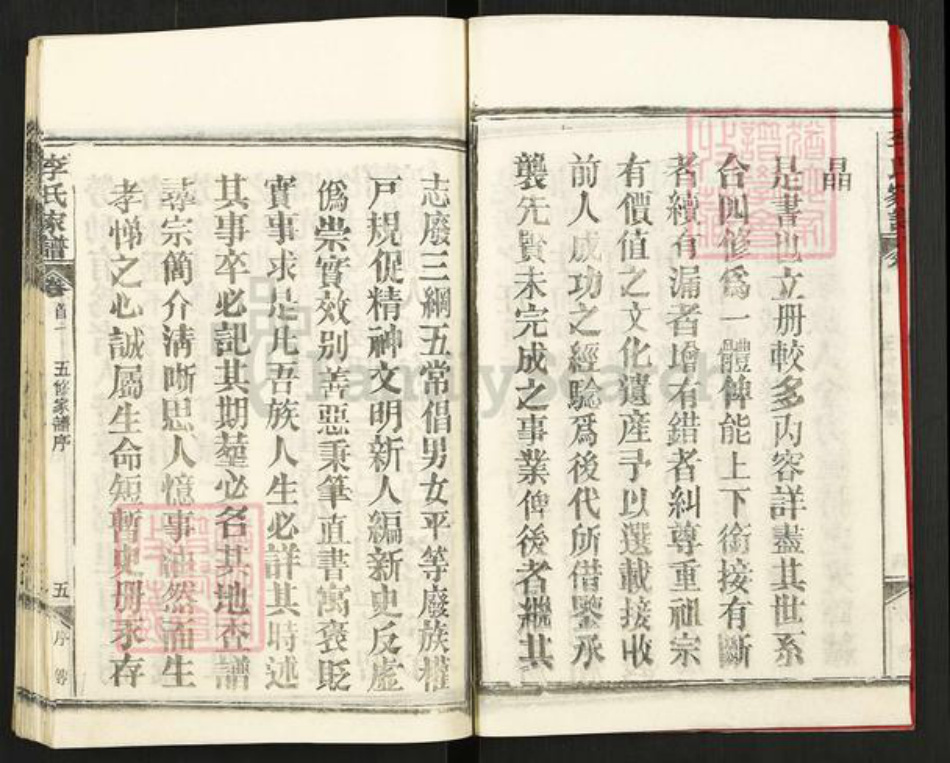 晶
是書也立册較多內容詳盡其世系
合四修爲一體俾能上下銜接有斷
者續有漏者增有錯者糾尊重祖宗
有價值之文化遺産予以選載接收
前人成功之經驗爲後代所借鑒承
襲先賢未完成之事業俾後者繼其
志廢三綱五常倡男女平等廢族權
戸規促精神文明新人編新史反虛
僞崇實效別善惡秉筆直書寓褒貶
實事求是凡吾族人生必詳其時述
其事卒必記其期塟必名其地查譜
尋宗簡介清晰思人憶事油然而生
孝悌之心誠屬生命短暫史册永存
李氏家譜 卷首一 五修家譜序 五 序
FamilySearch